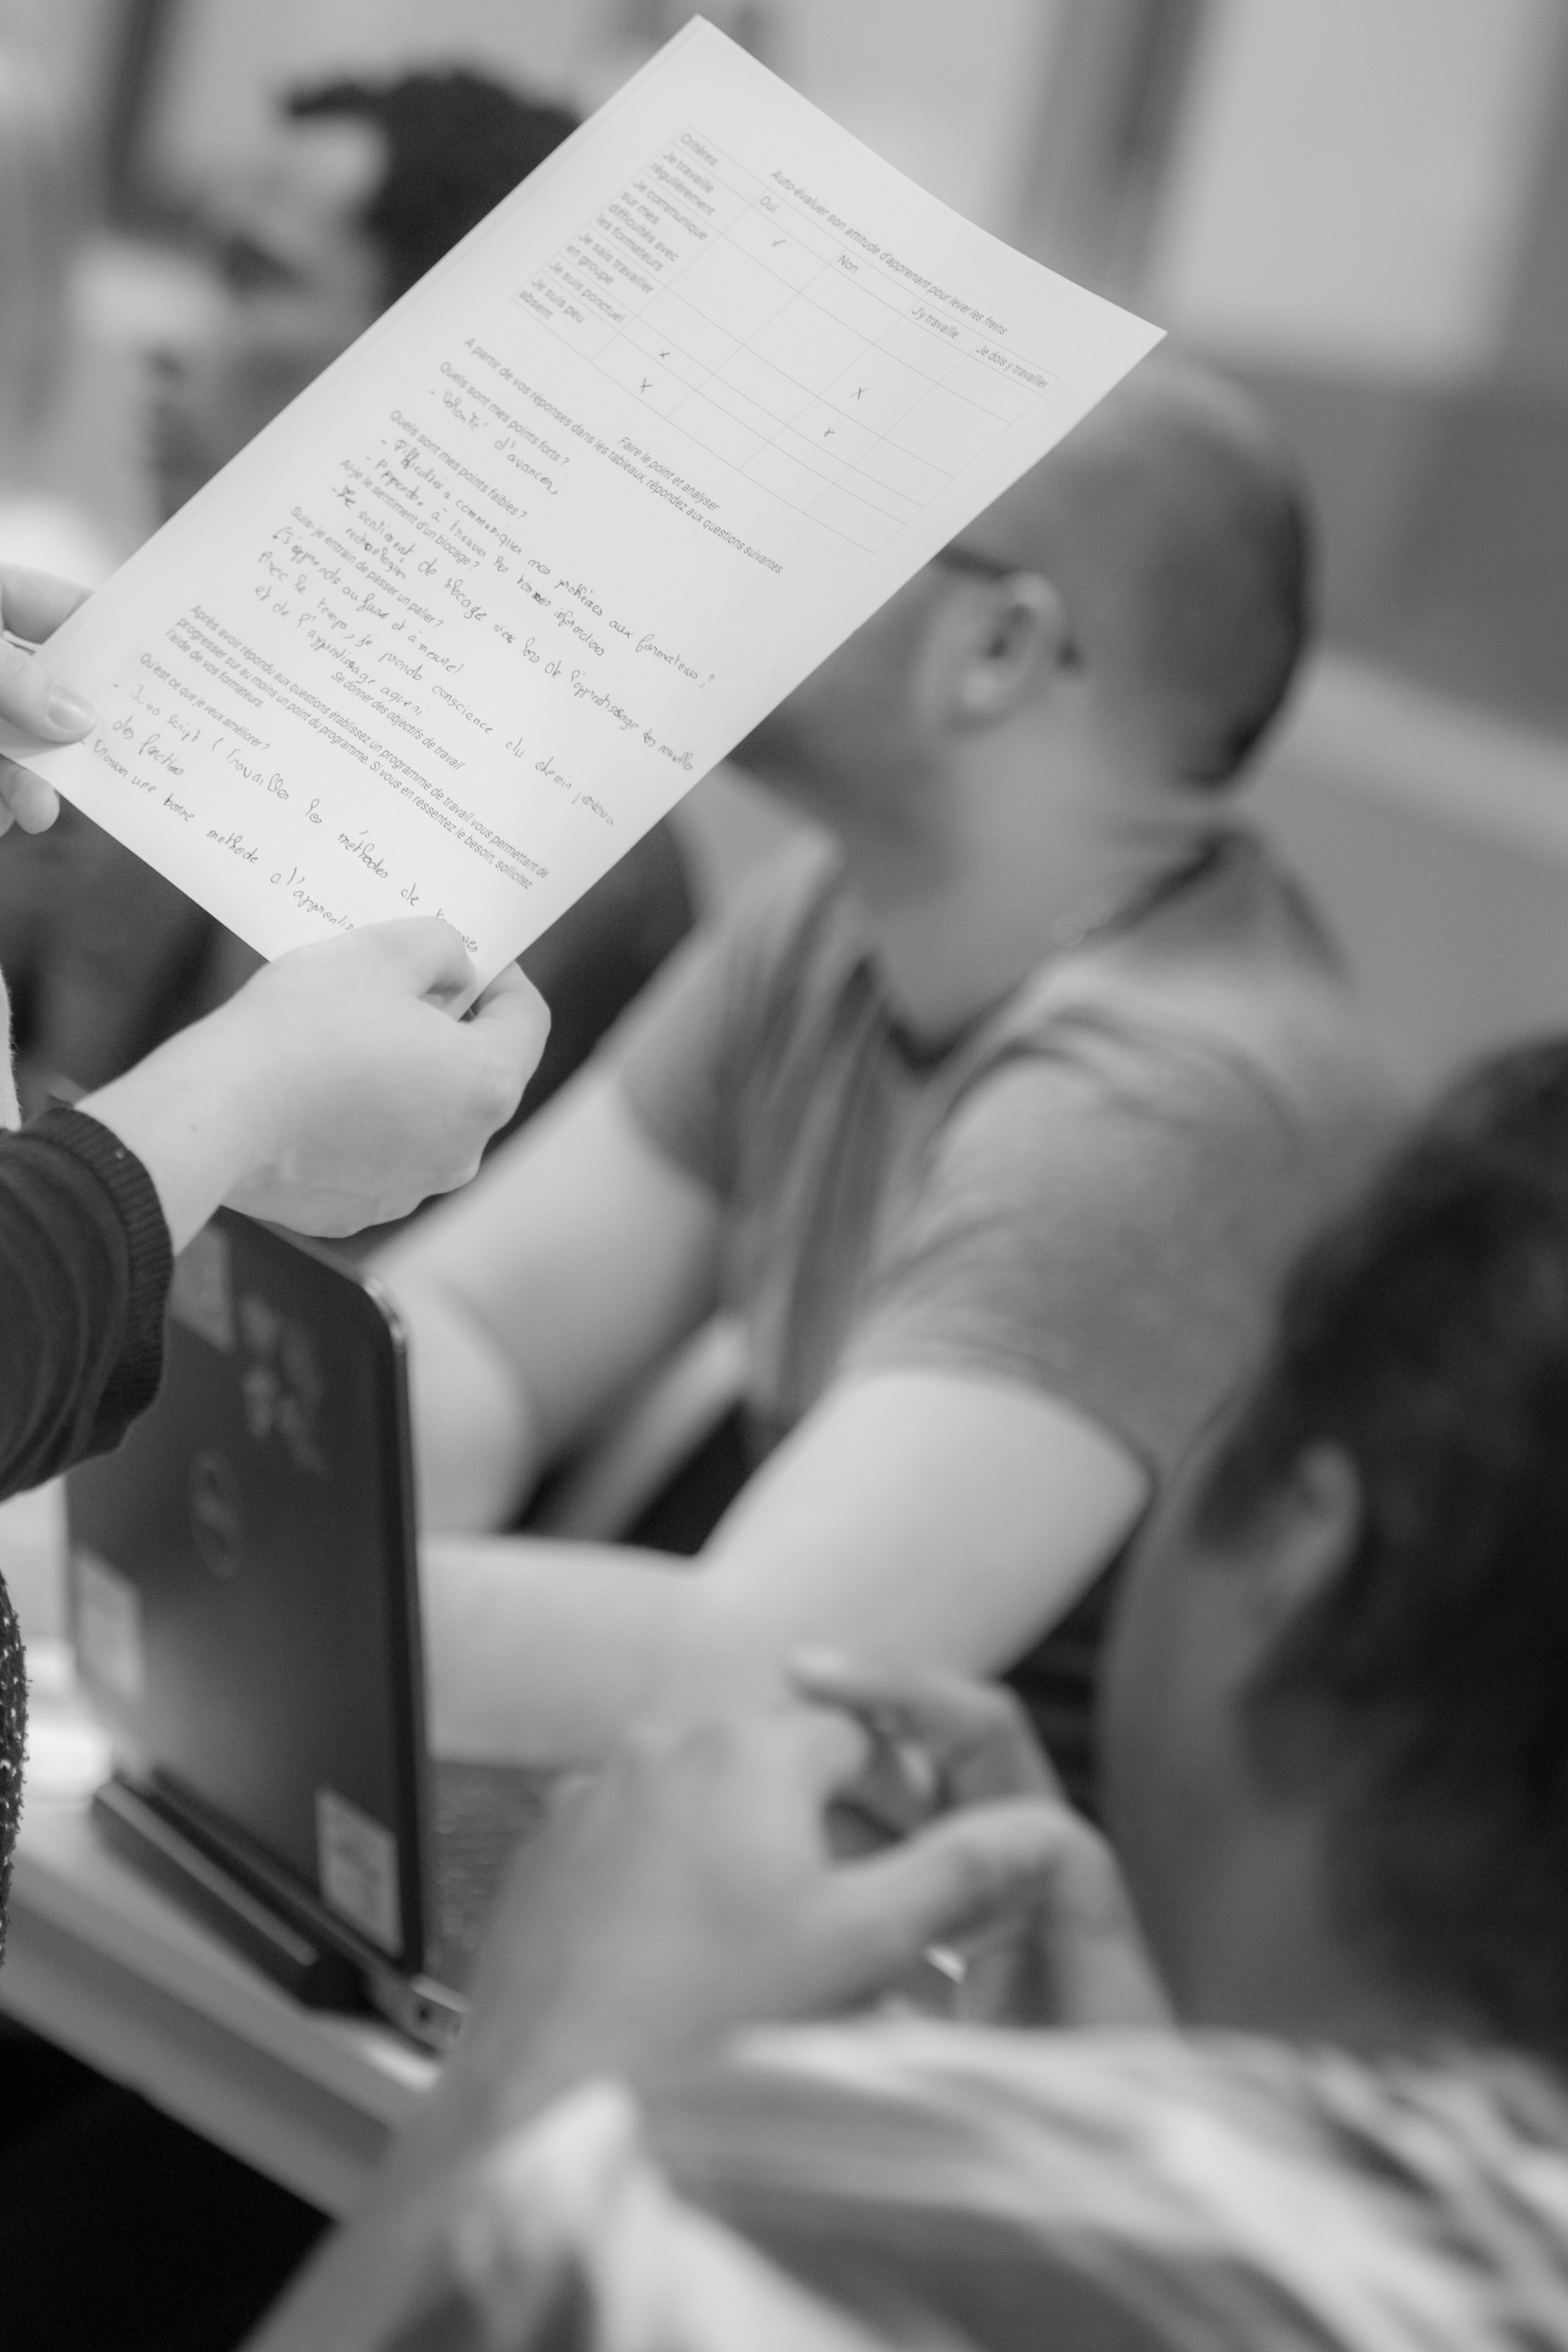 Auto-évaluer son attitude d'apprenant pour lever les freins
Critères Oui Non J'y travaille Je dois y travailler
Je travaille
régulièrement
Je communique
sur mes
difficultés avec
les formateurs
Je sais travailler
en groupe
Je suis ponctuel
Je suis peu
absent
Faire le point et analyser
A partir de vos réponses dans les tableaux, répondez aux questions suivantes.
Quels sont mes points forts ?
- Volonté d'avancer,
Quels sont mes points faibles ?
- Difficultés a communiquer mes problèmes aux formateurs ;
- Apprendre à trouver les bonnes informations
Ai-je le sentiment d'un blocage ?
- Le sentiment de blocage lors de l'apprentissage des nouvelles
technologies
Suis-je entrain de passer un palier ?
(J'apprends au fur et à mesure)
Avec le temps, je prends conscience du chemin
et de l'apprentissage
Se donner des objectifs de travail
Après avoir répondu aux questions établissez un programme de travail vous permettant de
progresser sur au moins un point du programme. Si vous en ressentez le besoin, sollicitez
l'aide de vos formateurs.
Qu'est ce que je veux améliorer?
- Java script ( Travailler les méthodes de
des fonctions
- Trouver une bonne methode a l'apprentis